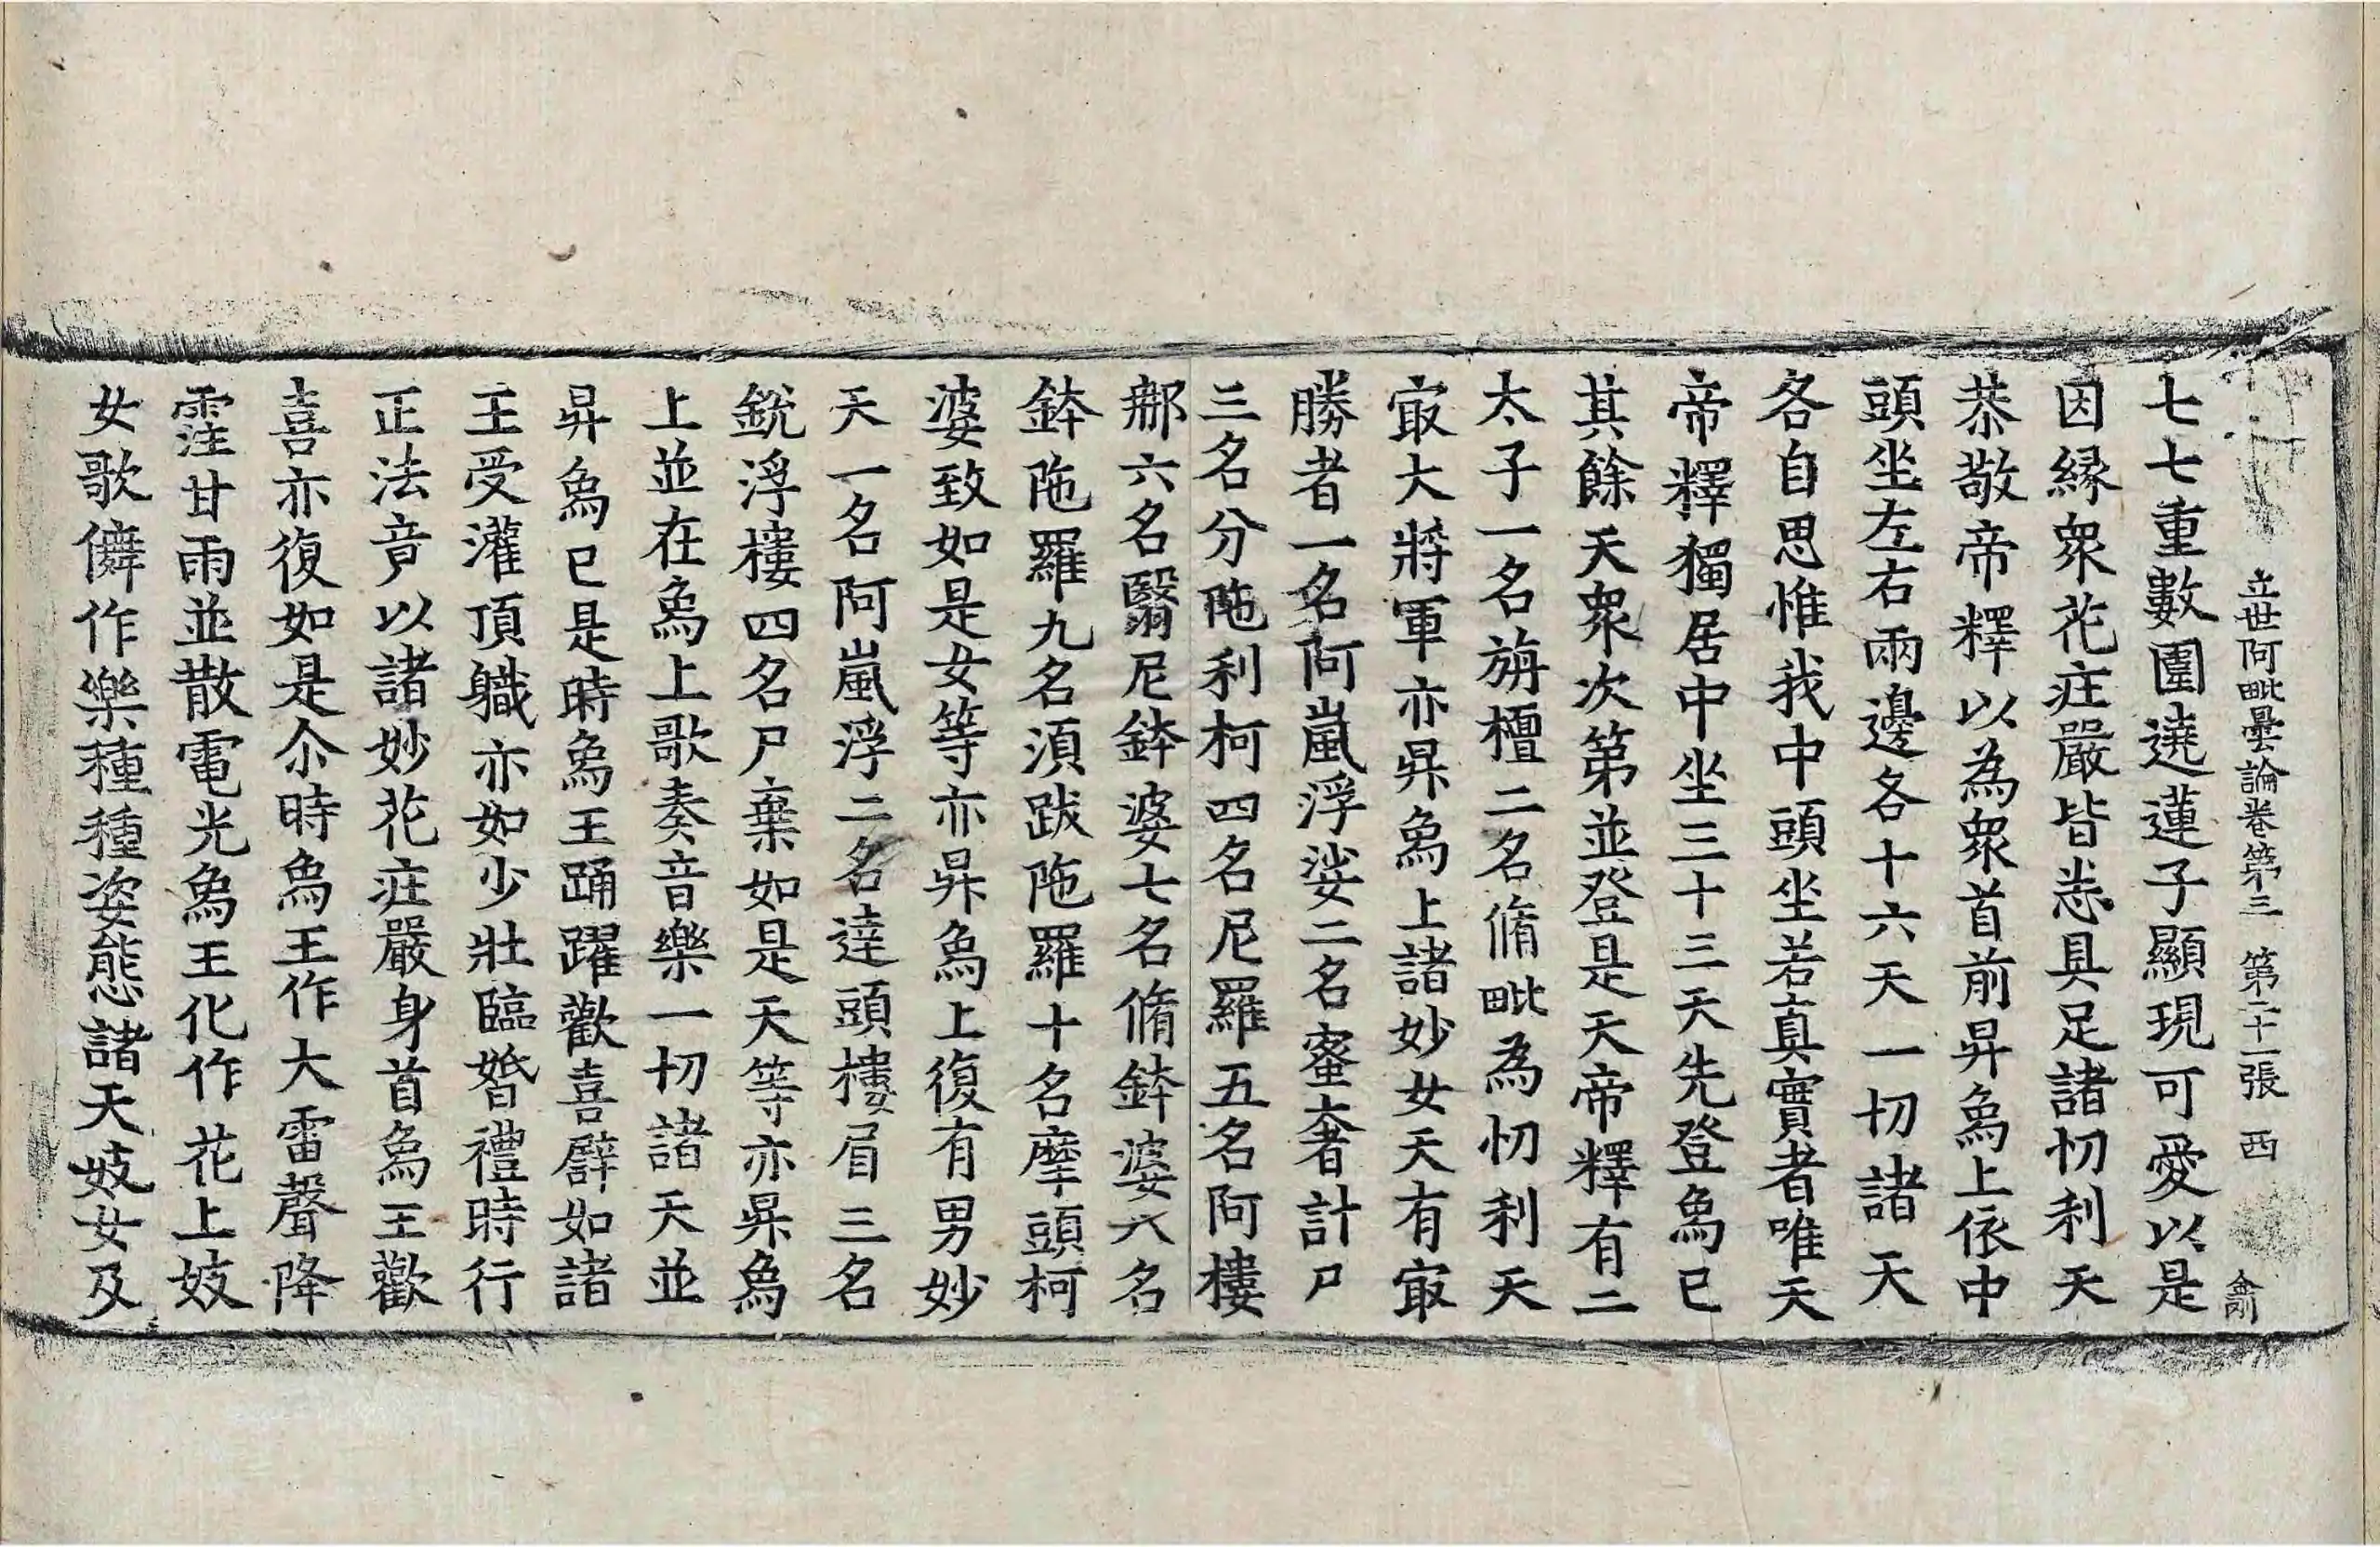 立世阿毗曇論卷第三 第二十一張 西
七七重數圍遶蓮子顯現可愛以是
因縁衆花㽵嚴皆悉具足諸忉利天
恭敬帝釋以為衆首前昇象上依中
頭坐左右兩邊各十六天一切諸天
各自思惟我中頭坐若真實者唯天
帝釋獨居中坐三十三天先登象已
其餘天衆次第並登是天帝釋有二
太子一名旃檀二名脩毗為忉利天
㝡大將軍亦昇象上諸妙女天有㝡
勝者一名阿嵐浮娑二名蜜奢計尸
三名分陁利柯四名尼羅五名阿樓
那六名翳尼鉢婆七名脩鉢婆八名
鉢陁羅九名湏跋陁羅十名摩頭柯
婆致如是女等亦昇象上復有男妙
天一名阿嵐浮二名達頭樓眉三名
銳浮樓四名尸棄如是天等亦昇象
上並在象上歌奏音樂一切諸天並
昇象已是時象王踊躍歡喜譬如諸
王受灌頂職亦如少壯臨婚禮時行
正法音以諸妙花㽵嚴身首象王歡
喜亦復如是尒時象王作大雷聲降
霔甘雨並散電光象王化作花上妓
女歌儛作樂種種姿態諸天妓女及